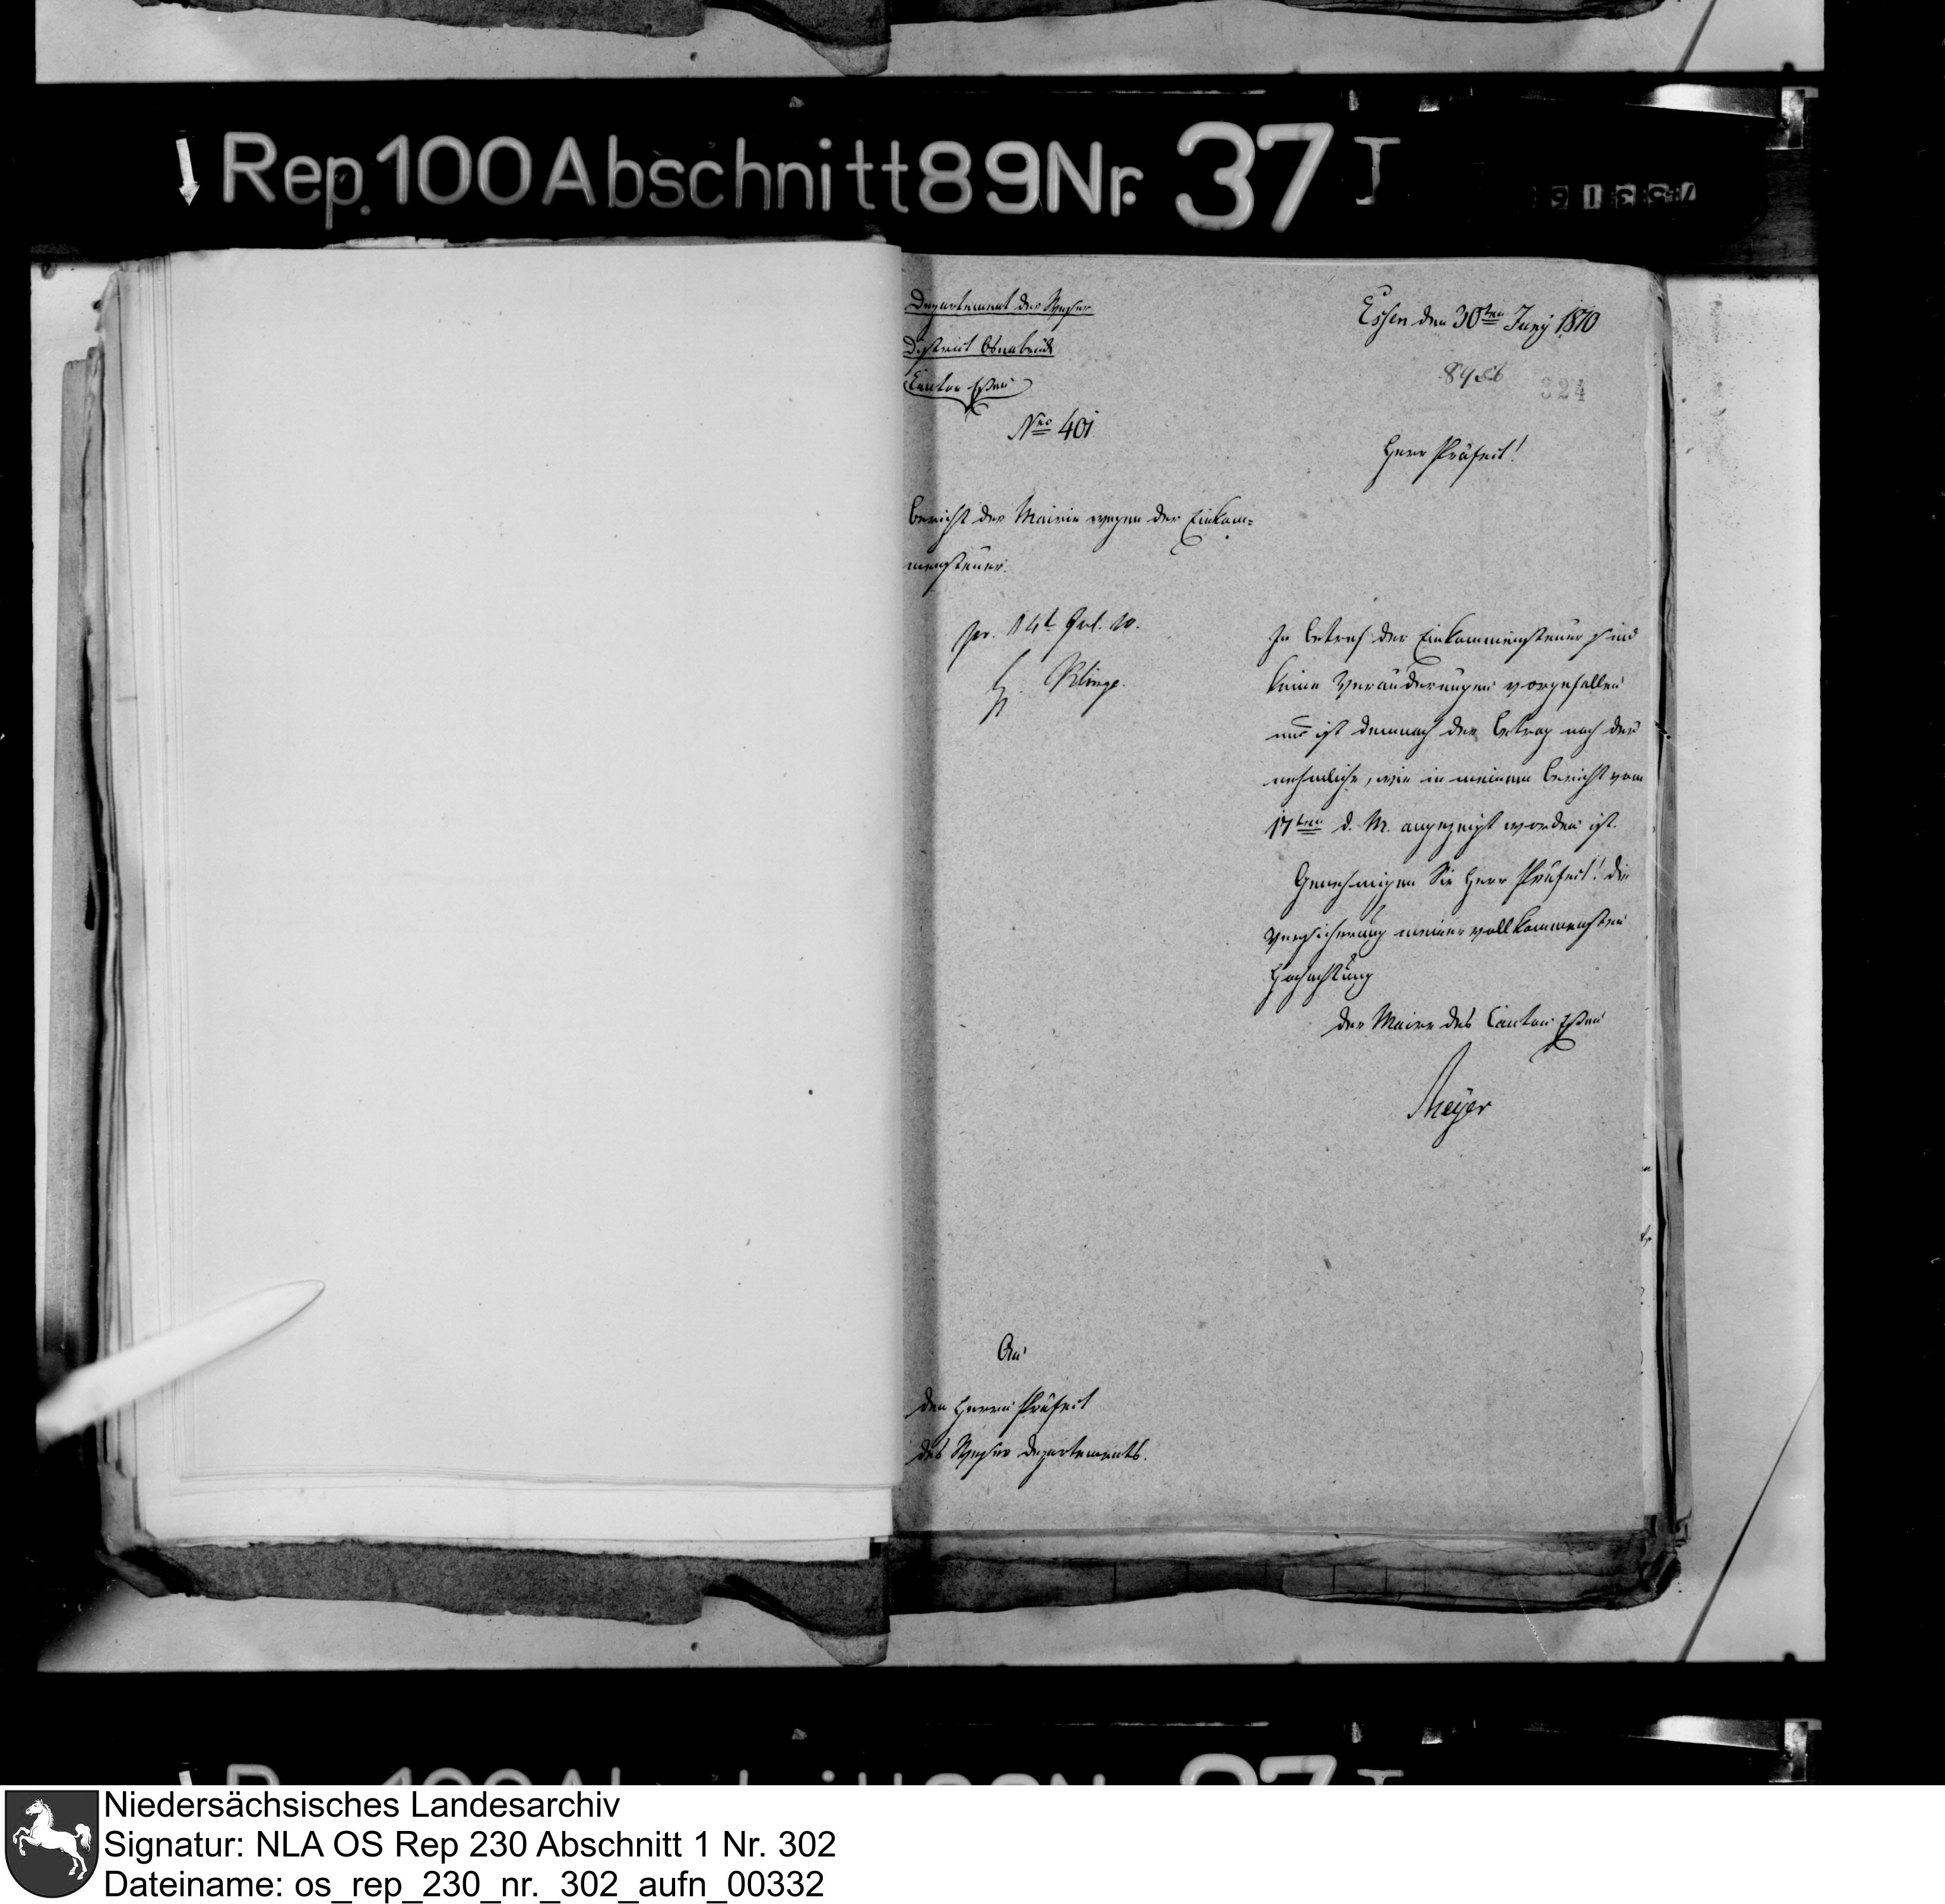 Rep. 100 Abschnitt 89 Nr. 37 I
Departement der Weser
District Osnabrück
Canton Essen
Nro 401
Essen den 30ten Juny 1810
324
Herr Präfect!
Bericht des Mairie wegen der Einkom=
mensteuer.
pr. 14t Jul. 10.
In betref der Einkommensteuer sind
keine Veränderungen vorgefallen
und ist demnach der Betrag noch der
nehmliche, wie in meinem Bericht vom
17ten d. M. angezeigt worden ist.
Genehmigen Sie Herr Präfect! die
Versicherung meiner vollkommensten
Hochachtung
der Maire des Canton Essen
Meyer
An
den Herrn Präfect
des Weser Departements.
Niedersächsisches Landesarchiv
Signatur: NLA OS Rep 230 Abschnitt 1 Nr. 302
Dateiname: os_rep_230_nr._302_aufn_00332